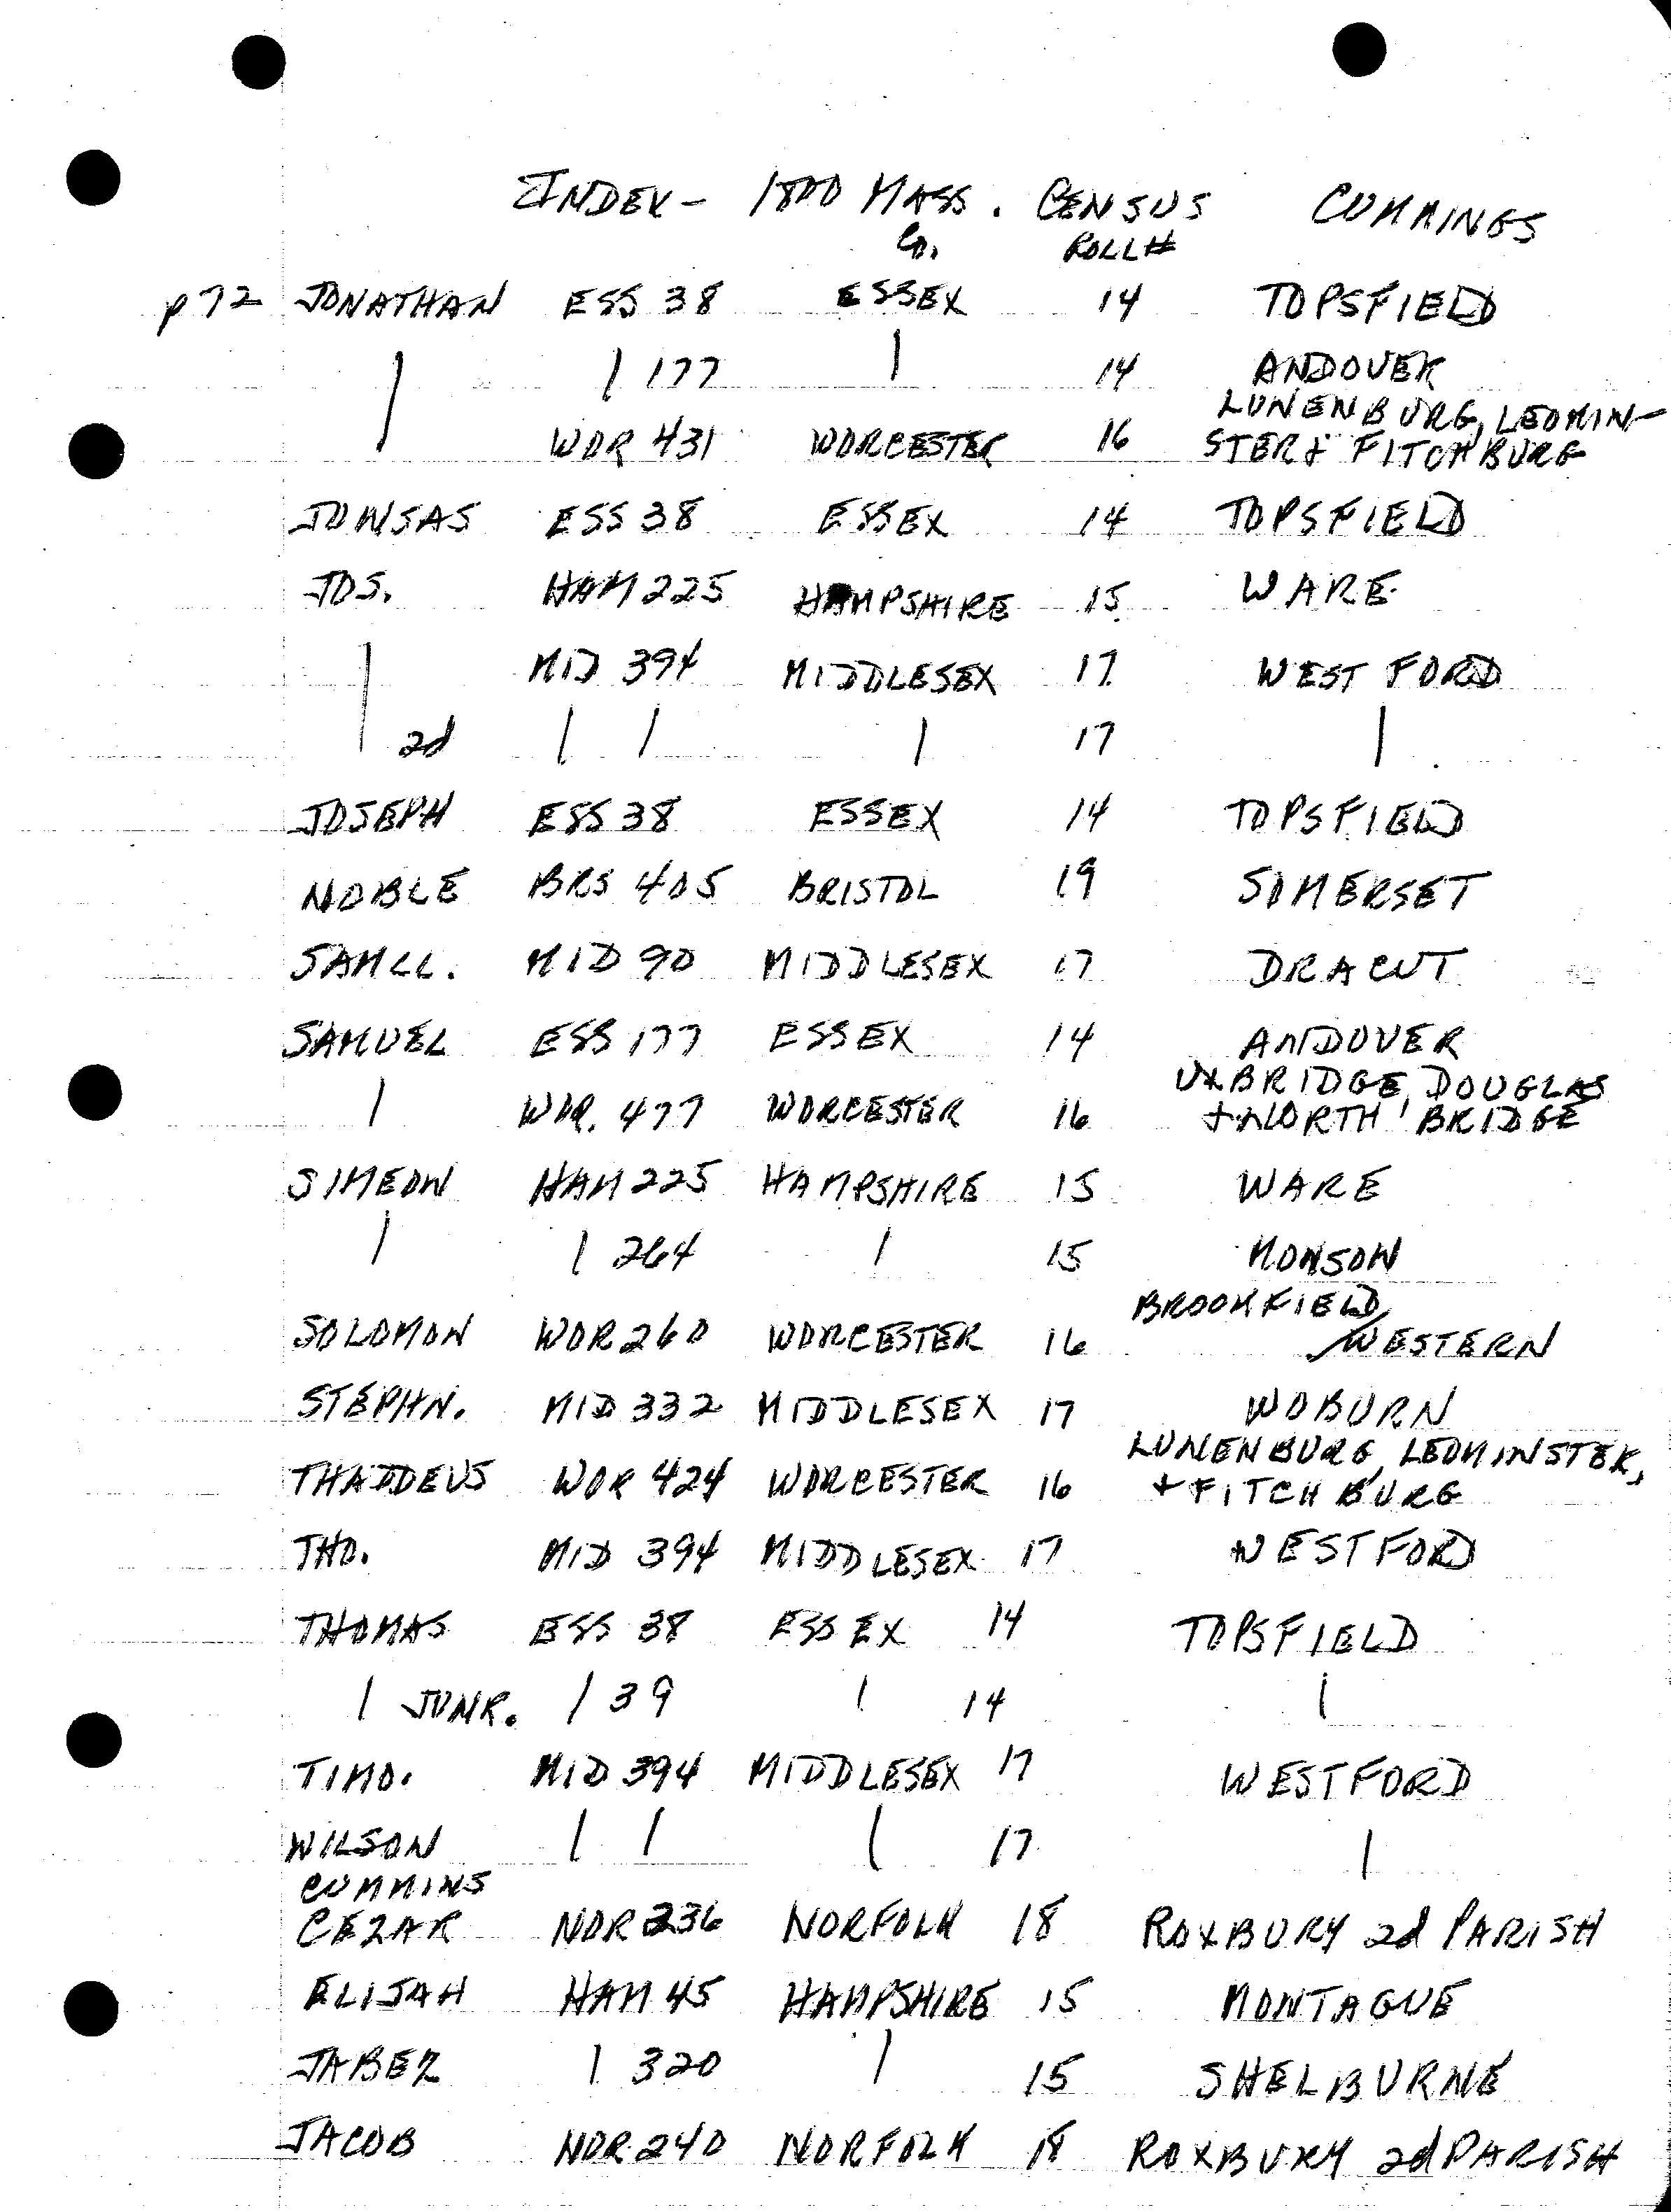 INDEX - 1800 MASS. CENSUS CUMMINGS
Co. ROLL #
p72 JONATHAN ESS 38 ESSEX 14 TOPSFIELD
| | 177 | 14 ANDOVER
LUNENBURG, LEOMIN-
| WOR 431 WORCESTER 16 STER & FITCHBURG
JONSAS ESS 38 ESSEX 14 TOPSFIELD
JOS. HAM 225 HAMPSHIRE 15 WARE
| MID 394 MIDDLESEX 17 WEST FORD
| 2d | | | 17 |
JOSEPH ESS 38 ESSEX 14 TOPSFIELD
NOBLE BRS 405 BRISTOL 19 SOMERSET
SAMLL. MID 90 MIDDLESEX 17 DRACUT
SAMUEL ESS 177 ESSEX 14 ANDOVER
UXBRIDGE, DOUGLAS
| WOR. 477 WORCESTER 16 + NORTH BRIDGE
SIMEON HAM 225 HAMPSHIRE 15 WARE
| | 264 | 15 MONSON
BROOKFIELD/
SOLOMON WOR 260 WORCESTER 16 WESTERN
STEPHN. MID 332 MIDDLESEX 17 WOBURN
LUNENBURG, LEOMINSTER,
THADDEUS WOR 424 WORCESTER 16 + FITCHBURG
THO. MID 394 MIDDLESEX 17 WESTFORD
THOMAS ESS 38 ESSEX 14 TOPSFIELD
| JUNR. | 39 | 14 |
TIMO. MID 394 MIDDLESEX 17 WESTFORD
WILSON | | | 17 |
CUMMINS
CEZAR NOR 236 NORFOLK 18 ROXBURY 2d PARISH
ELIJAH HAM 45 HAMPSHIRE 15 MONTAGUE
JABEZ | 320 | 15 SHELBURNE
JACOB NOR. 240 NORFOLK 18 ROXBURY 2d PARISH